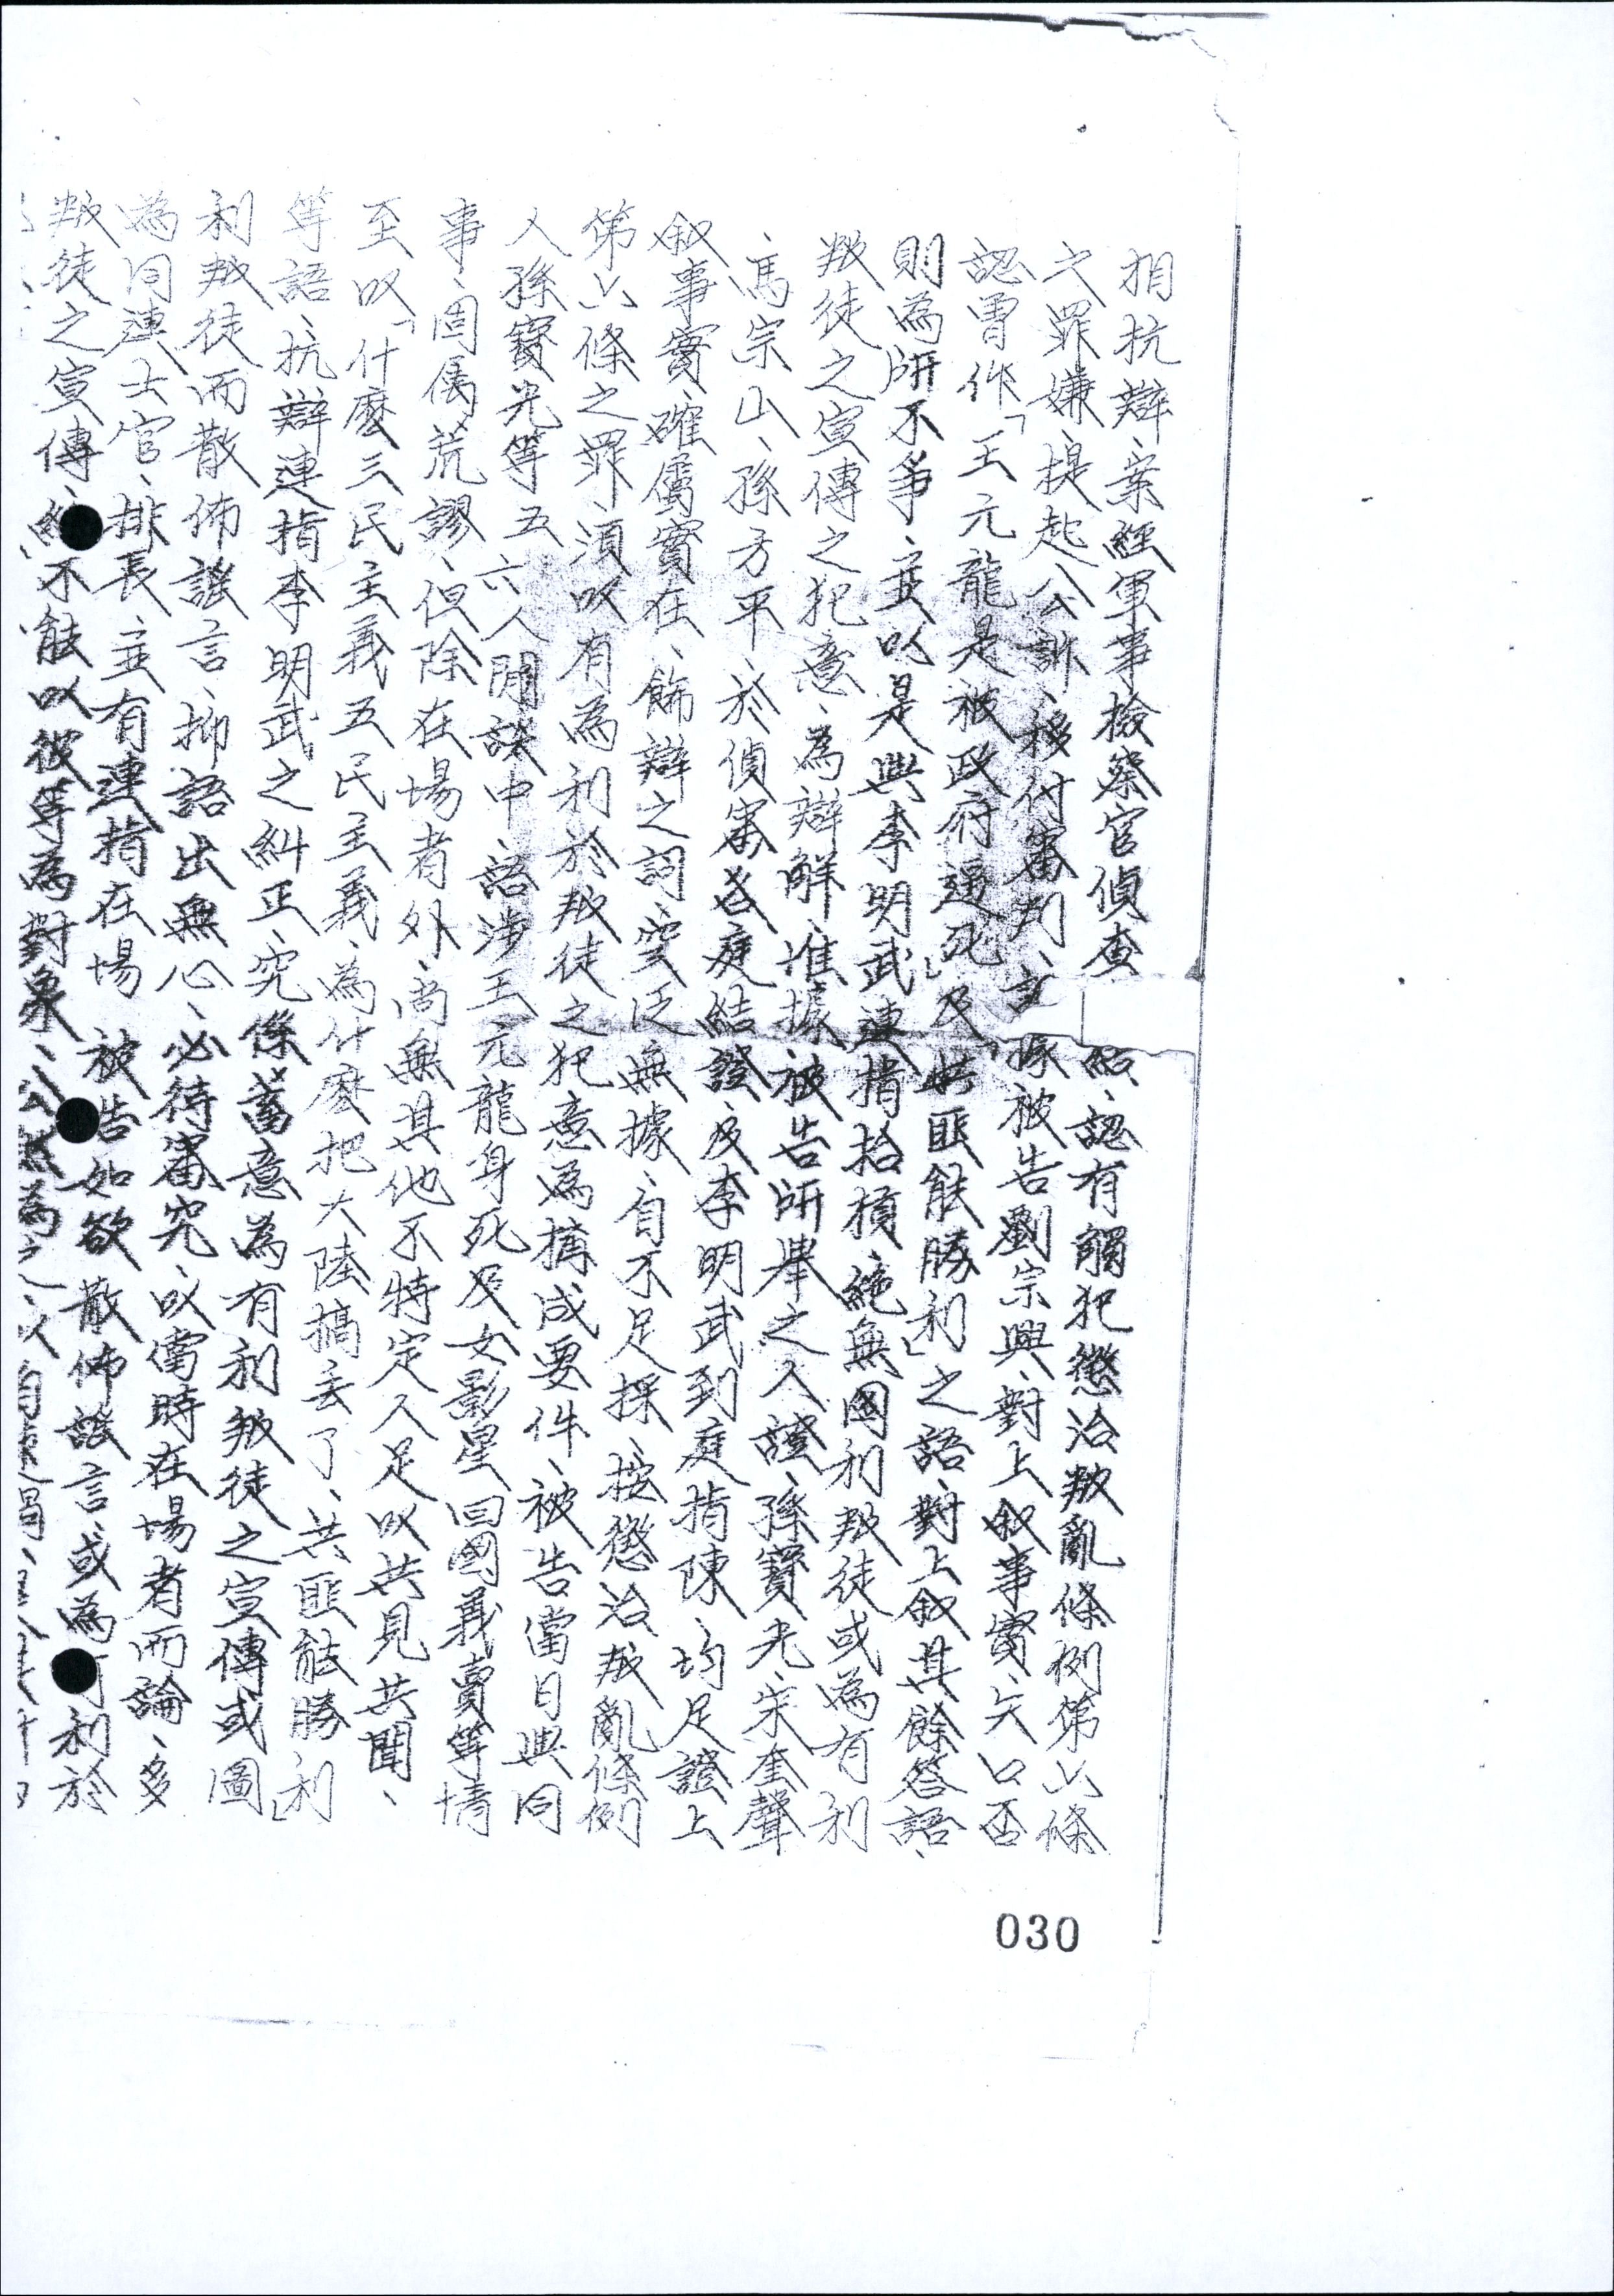 相抗辯、案經軍事檢察官偵查 結、認有觸犯懲治叛亂條例第六條
之罪嫌、提起公訴、移付審判、 據被告劉宗興、對上敘事實、矢口否
認曾作「王元龍是被政府逼死」及「共匪能勝利」之語、對上敘其餘答語、
則為所不爭、並以是與李明武連指抬槓、絕無圖利叛徒或為有利
叛徒之宣傳之犯意、為辯解、惟據被告所舉之人證、孫寶光、宋奎聲
、馮宗山、孫方平、於偵審各庭結證、及李明武到庭指陳、均足證上
敘事實確屬實在、飾辯之詞、空泛無據、自不足採、按懲治叛亂條例
第六條之罪、須以有為利於叛徒之犯意為構成要件、被告當日與同
人孫寶光等五六人閒談中、語涉王元龍身死及女影星回國義賣等情
事、固屬荒謬、但除在場者外、尚無其他不特定人足以共見共聞、
至以「什麼三民主義五民主義、為什麼把大陸搞丟了、共匪能勝利」
等語、抗辯連指李明武之糾正、究係蓄意為有利叛徒之宣傳或圖
利叛徒而散佈謠言、抑語出無心、必待審究、以當時在場者而論、多
為同連士官、排長、並有連指在場 被告如欲散佈謠言、或為 利於
叛徒之宣傳、 不能以彼等為對象、
030